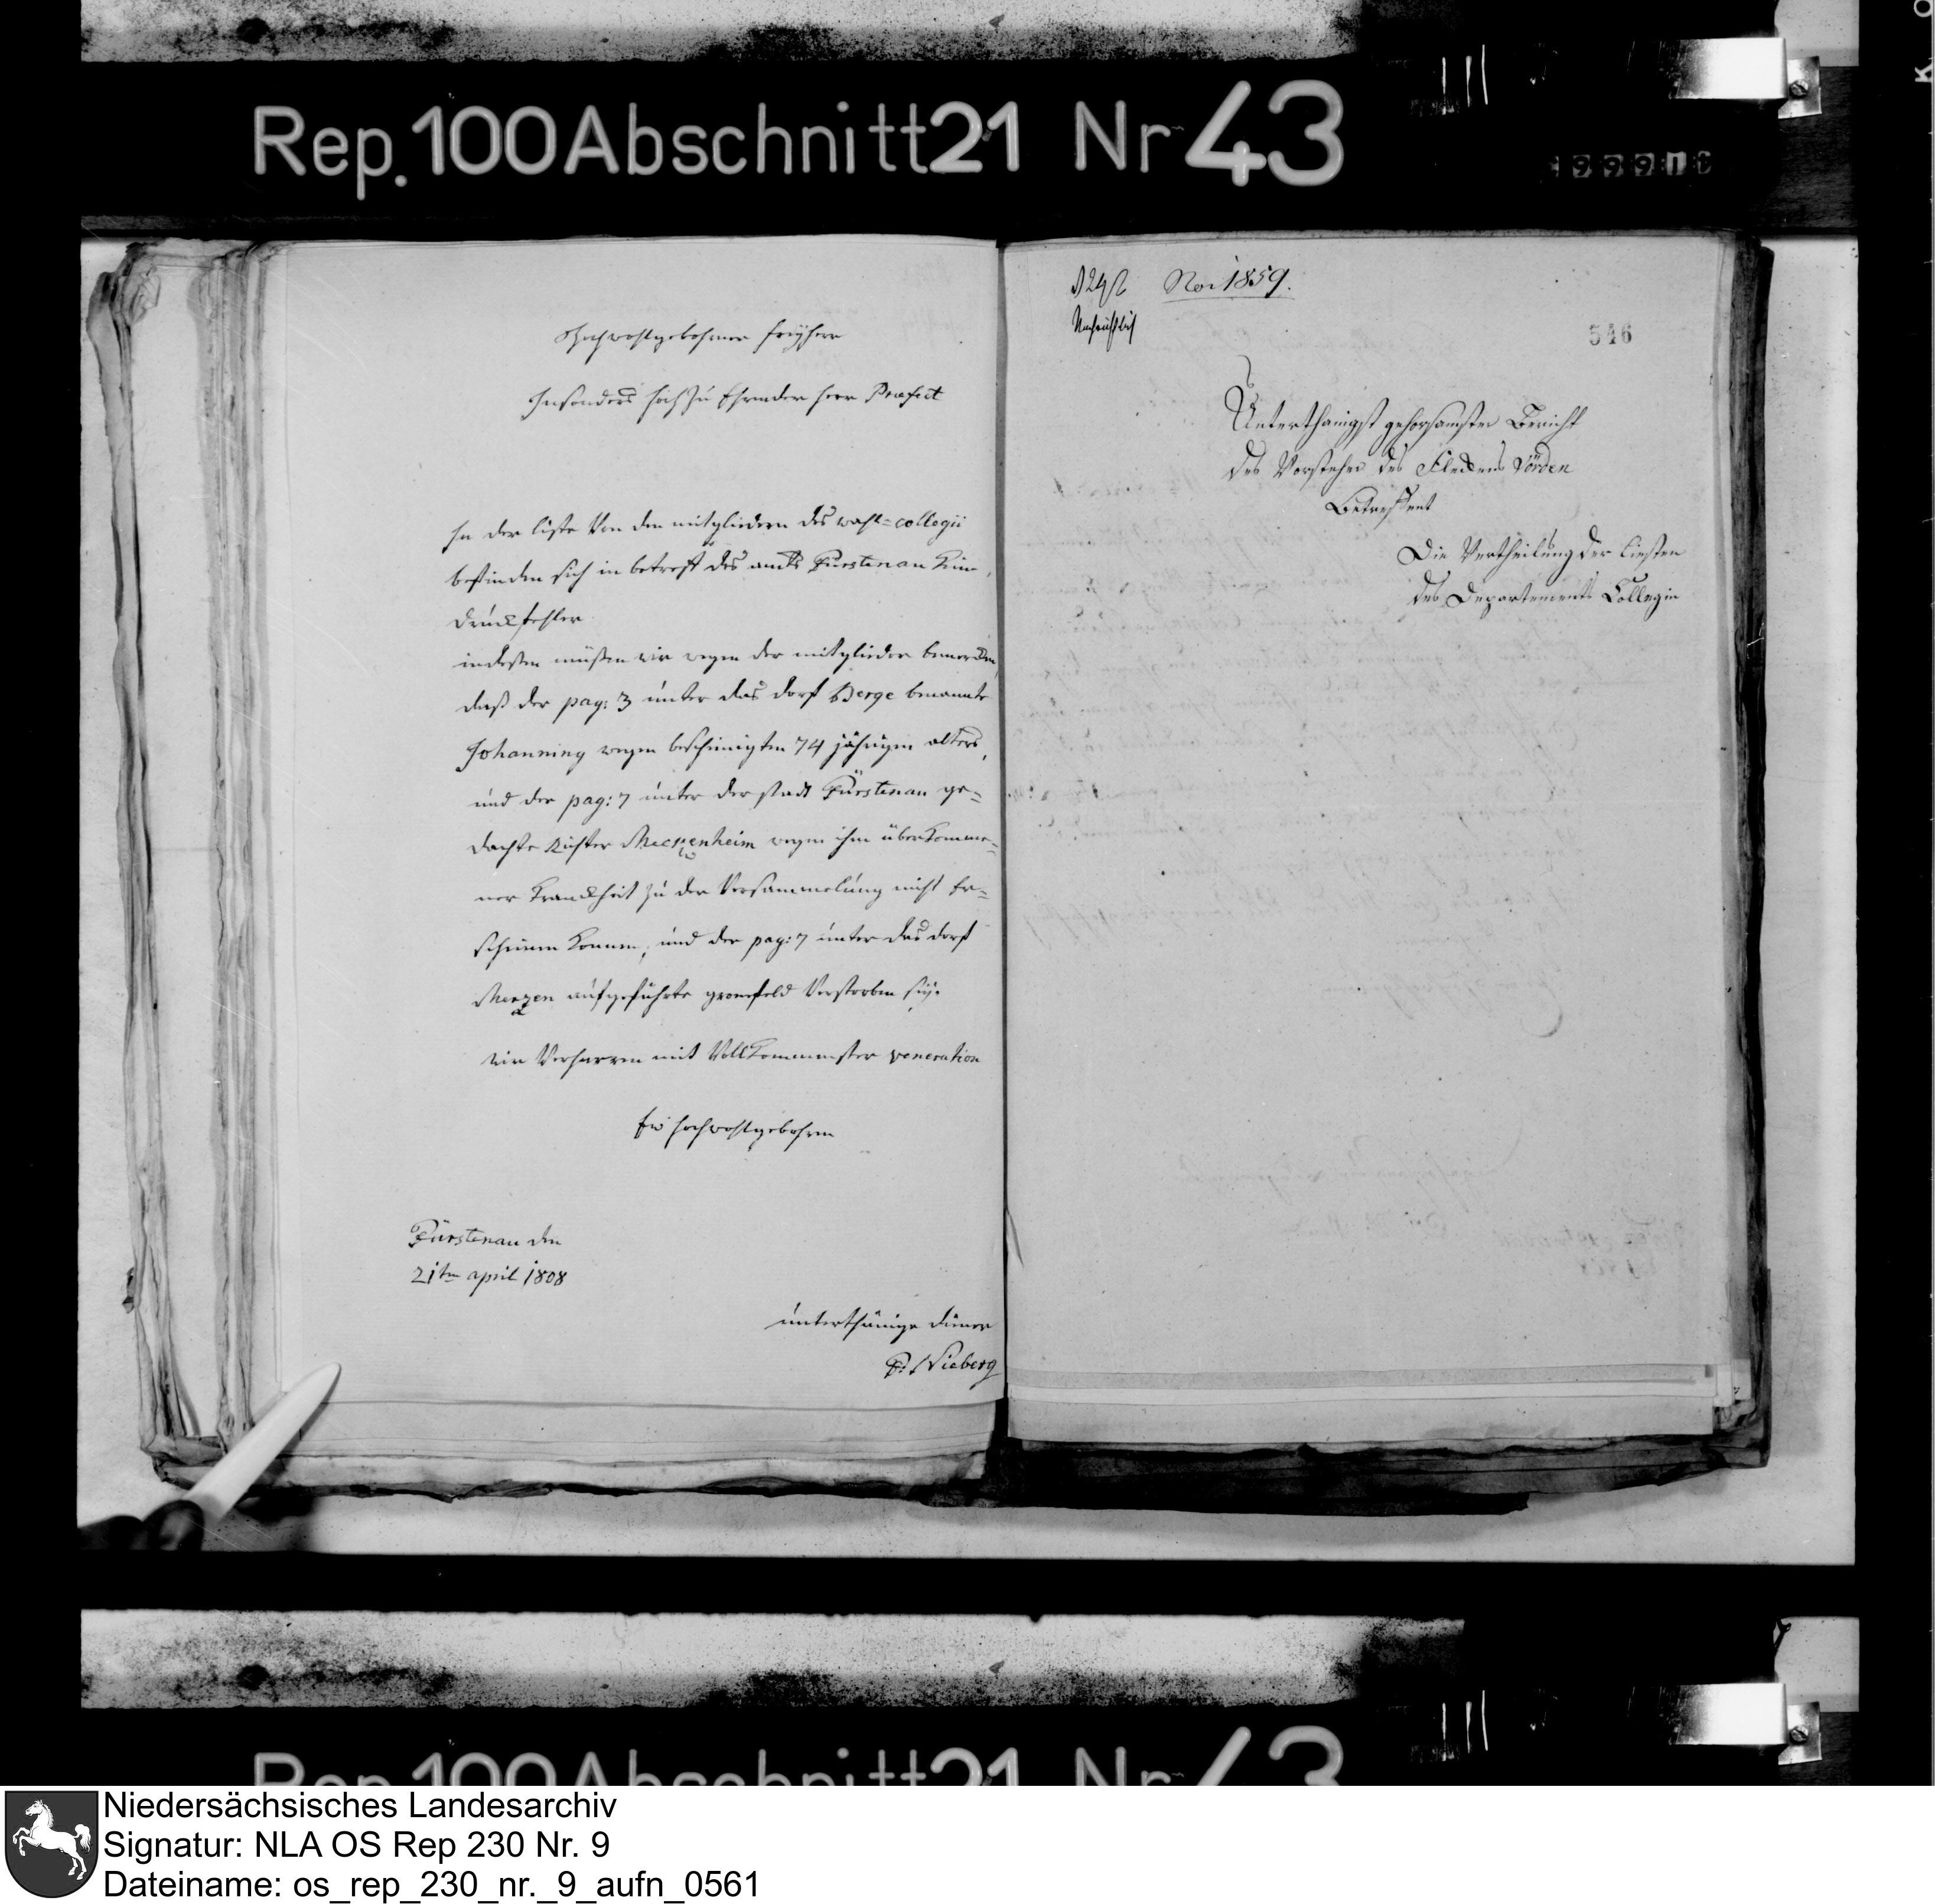 Rep. 100 Abschnitt 21 Nr 43
Hochwohlgebohrner Freyherr
Insonders hochzu Ehrender Herr Praefect
In der liste Von den mitgliedern des wahl=collegii
befinden sich in betreff des amts Fürstenau Keine
Druckfehler
indeßen müßen wir wegen der mitglieder bemercken,
daß der pag: 3 unter das dorf Berge benannte
Johanning wegen bescheinigten 74 jährigen alters,
und der pag: 7 unter der stadt Fürstenau ge=
dachte Richter Meckenheim wegen ihm überkomme=
ner Kranckheit zu der Versammelung nicht Er=
scheinen Können, und der pag: 7 unter das dorf
Merzen aufgeführte gromfeld Verstorben sey.
Wir Verharren mit Vollkommenster veneration
Ew Hochwohlgebohren
Fürstenau den
21ten april 1808
unterthänige diener
Nieberg
No: 1859.
546
Unterthänigst gehorsamster Bericht
des Vorsteher des Fleckens Vörden
Betreffent
Die Vertheilung der Liesten
des Departements Collegin
Rep. 100 Abschnitt 21 Nr 43
Niedersächsisches Landesarchiv
Signatur: NLA OS Rep 230 Nr. 9
Dateiname: os_rep_230_nr._9_aufn_0561